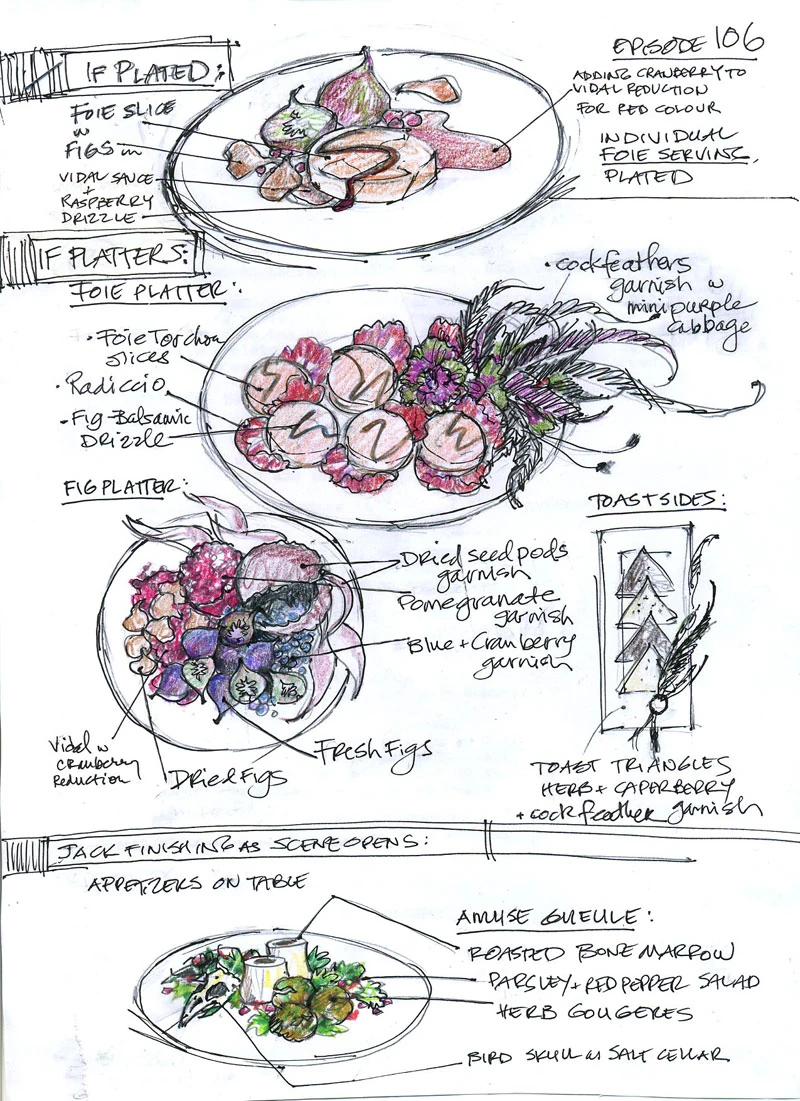 IF PLATED:
EPISODE 106
FOIE SLICE
W
FIGS W
VIDAL SAUCE
+
RASPBERRY
DRIZZLE
ADDING CRANBERRY TO
VIDAL REDUCTION
FOR RED COLOUR
INDIVIDUAL
FOIE SERVING,
PLATED
IF PLATTERS:
FOIE PLATTER:
• Foie Torchon
slices
• Radiccio
• Fig-Balsamic
DRIZZLE
• cockfeathers
garnish w
mini purple
cabbage
FIG PLATTER:
Dried seed pods
garnish
Pomegranate
garnish
Blue + Cranberry
garnish
Vidal w
CRANBERRY
REDUCTION
Dried Figs
Fresh Figs
TOAST SIDES:
TOAST TRIANGLES
HERB + CAPERBERRY
+ cockfeather garnish
JACK FINISHING AS SCENE OPENS:
APPETZERS ON TABLE
AMUSE GUEULE:
ROASTED BONE MARROW
PARSLEY + RED PEPPER SALAD
HERB GOUGERES
BIRD SKULL W SALT CELLAR